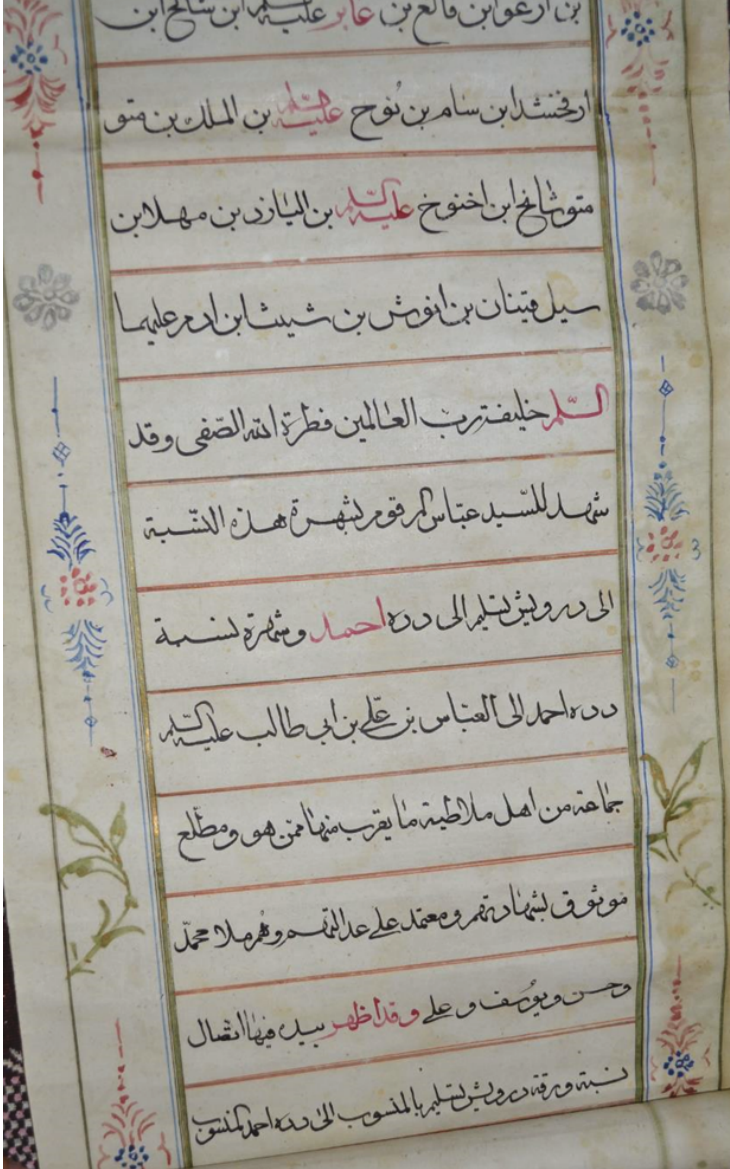 بن ارغوابن فالع بن عابر عليه السلم ابن شالخ ابن
ارفخشد ابن سام بن نُوح عليه السلم بن الملك بن متو
متوشالخ ابن اخنوخ عليه السّلم بن اليازد بن مهلابن
سيل قينان بن انوش بن شيث ابن ادم عليهما
السّلم خليفة رب العالمين فطرة الله الصّفى وقد
شهد للسّيد عبّاس المرقوم لشهرة هذه النسّبة
الى درويش تسليم الى دده احمد وشهرة نسبة
دده احمد الى العبّاس بن علي بن ابي طالب عليه السّلم
جماعة من اهل ملاطية ما يقرب منها ممن هو ومطّلع
موثوق بشهادتهم ومعتمد على عدالتهم وهُم ملا محمّد
وحسن ويوسُف وعلي وقد اظهر بيده فيها اتصال
نسبة ورقة درويش تسليم بالمنسوب الى دده احمد المنسوب